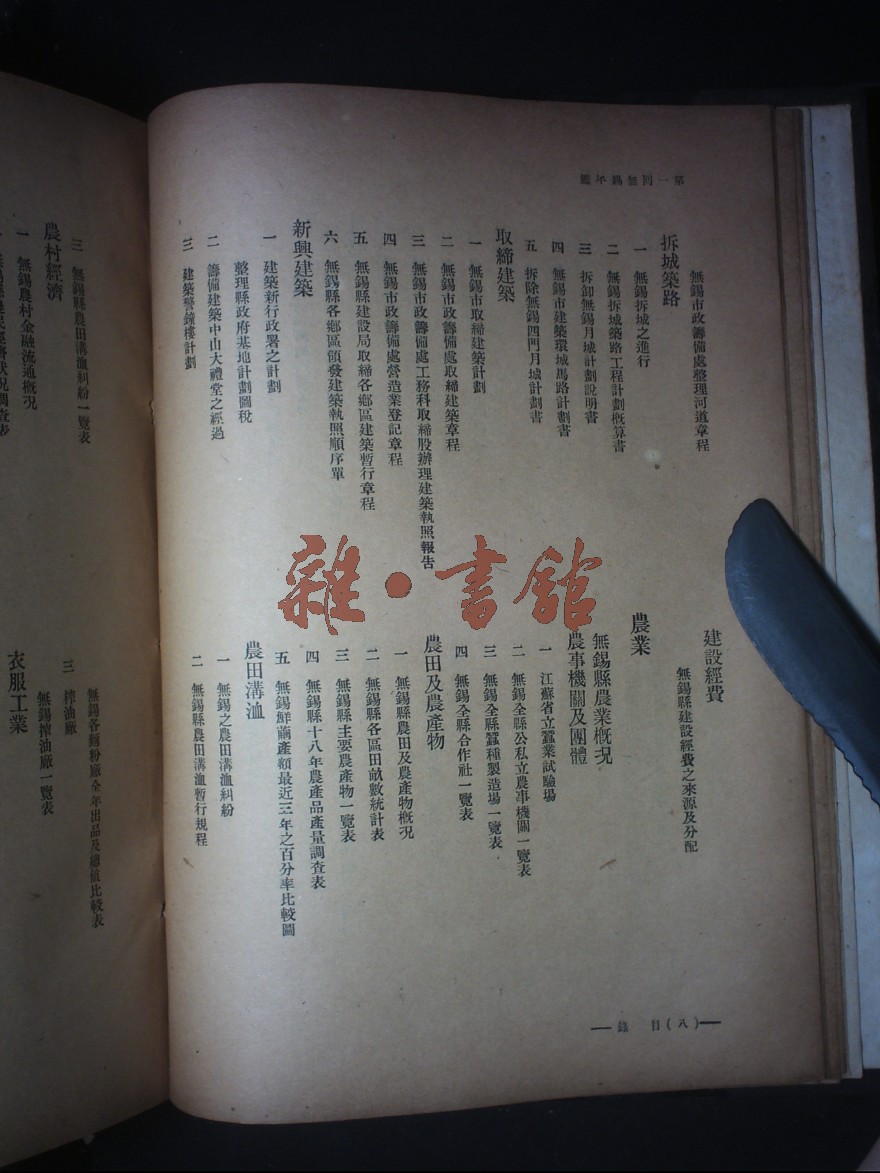 第一回無錫年鑑
無錫市政籌備處整理河道章程
拆城築路
一 無錫拆城之進行
二 無錫拆城築路工程計劃概算書
三 拆卸無錫月城計劃說明書
四 無錫市建築環城馬路計劃書
五 拆除無錫四門月城計劃書
取締建築
一 無錫市取締建築計劃
二 無錫市政籌備處取締建築章程
三 無錫市政籌備處工務科取締股辦理建築執照報告
四 無錫市政籌備處營造業登記章程
五 無錫縣建設局取締各鄉區建築暫行章程
六 無錫縣各鄉區頒發建築執照順序單
新興建築
一 建築新行政署之計劃
整理縣政府基地計劃圖稅
二 籌備建築中山大禮堂之經過
三 建築警鐘樓計劃
建設經費
無錫縣建設經費之來源及分配
農業
無錫縣農業概況
農事機關及團體
一 江蘇省立蠶業試驗場
二 無錫全縣公私立農事機關一覽表
三 無錫全縣蠶種製造場一覽表
四 無錫全縣合作社一覽表
農田及農產物
一 無錫縣農田及農產物概況
二 無錫縣各區田畝數統計表
三 無錫縣主要農產物一覽表
四 無錫縣十八年農產品產量調查表
五 無錫鮮繭產額最近三年之百分率比較圖
農田溝洫
一 無錫之農田溝洫糾紛
二 無錫縣農田溝洫暫行規程
目錄(八)
雜·書館
三 無錫縣農田溝洫糾紛一覽表
農村經濟
一 無錫農村金融流通概況
無錫各麵粉廠全年出品及總值比較表
三 榨油廠
無錫榨油廠一覽表
衣服工業